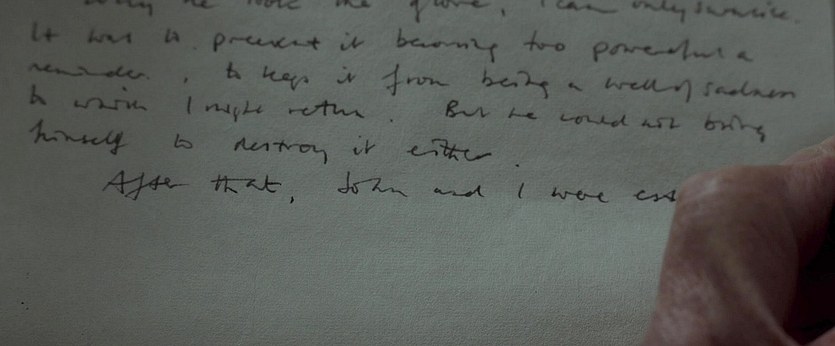 why he took the glove, I can only surmise.
It was to prevent it becoming too powerful a
reminder, to keep it from being a well of sadness
to which I might return. But he could not bring
himself to destroy it either.
After that, John and I were